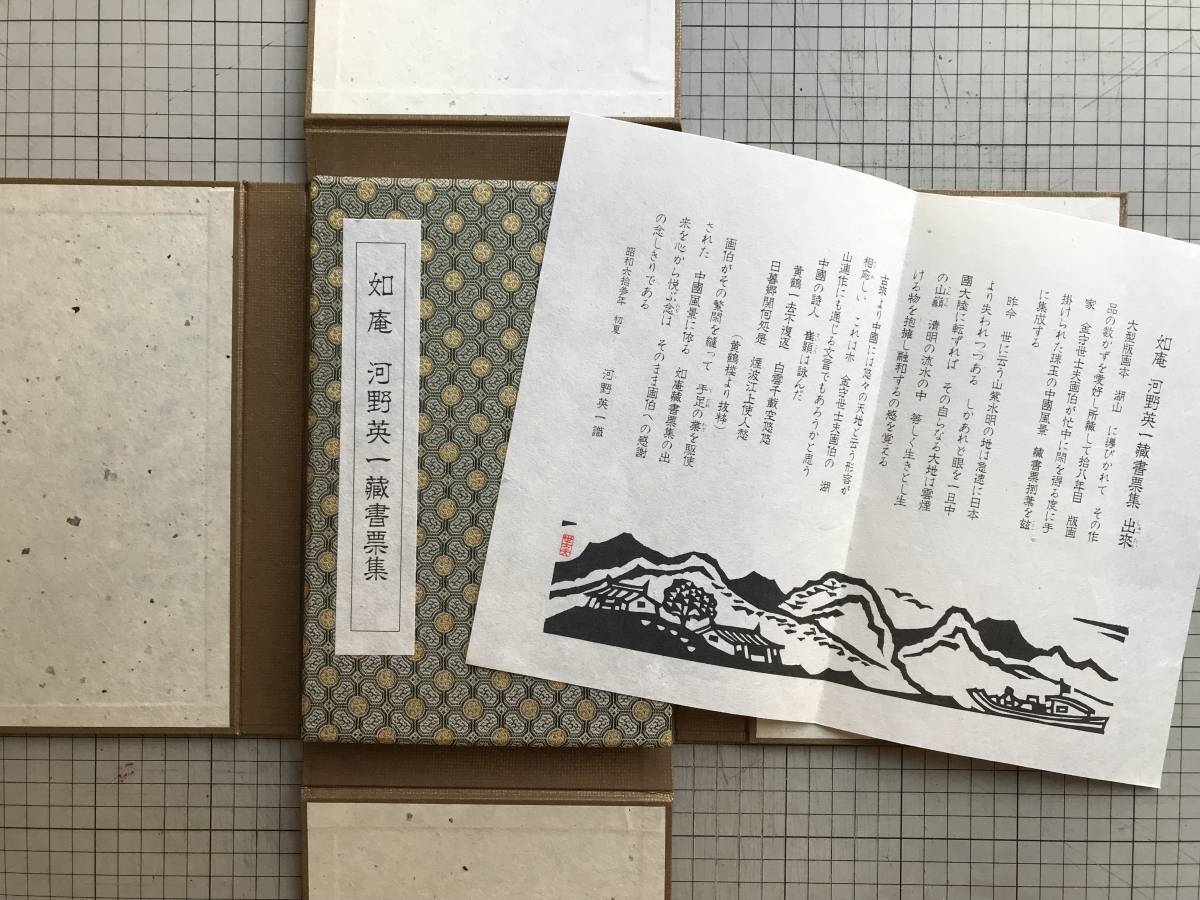 如庵 河野英一藏書票集
如庵 河野英一藏書票集 出來
大型版画本 湖山 に導びかれて その作
品の数かずを愛好し所蔵して拾八年目 版画
家 金守世士夫画伯が忙中に閑を得る度に手
掛けられた珠玉の中國風景 蔵書票捌葉を玆
に集成する
昨今 世に云う山紫水明の地は急速に日本
より失われつつある しかあれど眼を一旦中
國大陸に転ずれば その自らなる大地は雲煙
の山巓 清明の流水の中 等しく生きとし生
ける物を抱擁し融和するの感を覚える
古來より中國には悠々の天地と云う形容が
相応しい これは亦 金守世士夫画伯の 湖
山連作にも通じる文言でもあろうかと思う
中國の詩人 崔顥は詠んだ
黄鶴一去不復返 白雲千載空悠悠
日暮郷関何処是 煙波江上使人愁
(黄鶴楼より抜粋)
画伯がその繁閑を縫って 手足の業を駆使
された 中國風景に依る 如庵蔵書票集の出
来を心から悦ぶ念は そのまま画伯への感謝
の念しきりである
昭和六拾参年 初夏
河野英一識